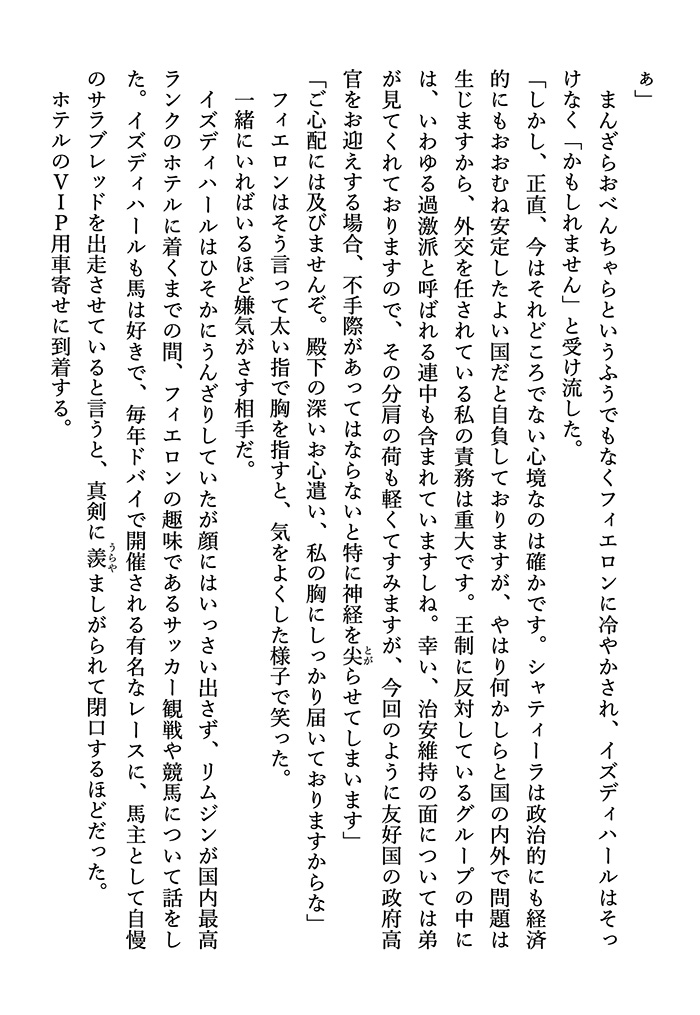 ぁ」
　まんざらおべんちゃらというふうでもなくフィエロンに冷やかされ、イズディハールはそっ
けなく「かもしれません」と受け流した。
「しかし、正直、今はそれどころでない心境なのは確かです。シャティーラは政治的にも経済
的にもおおむね安定したよい国だと自負しておりますが、やはり何かしらと国の内外で問題は
生じますから、外交を任されている私の責務は重大です。王制に反対しているグループの中に
は、いわゆる過激派と呼ばれる連中も含まれていますしね。幸い、治安維持の面については弟
が見てくれておりますので、その分肩の荷も軽くてすみますが、今回のように友好国の政府高
官をお迎えする場合、不手際があってはならないと特に神経を尖らせてしまいます」
「ご心配には及びませんぞ。殿下の深いお心遣い、私の胸にしっかり届いておりますからな」
　フィエロンはそう言って太い指で胸を指すと、気をよくした様子で笑った。
　一緒にいればいるほど嫌気がさす相手だ。
　イズディハールはひそかにうんざりしていたが顔にはいっさい出さず、リムジンが国内最高
ランクのホテルに着くまでの間、フィエロンの趣味であるサッカー観戦や競馬について話をし
た。イズディハールも馬は好きで、毎年ドバイで開催される有名なレースに、馬主として自慢
のサラブレッドを出走させていると言うと、真剣に羨ましがられて閉口するほどだった。
　ホテルのＶＩＰ用車寄せに到着する。